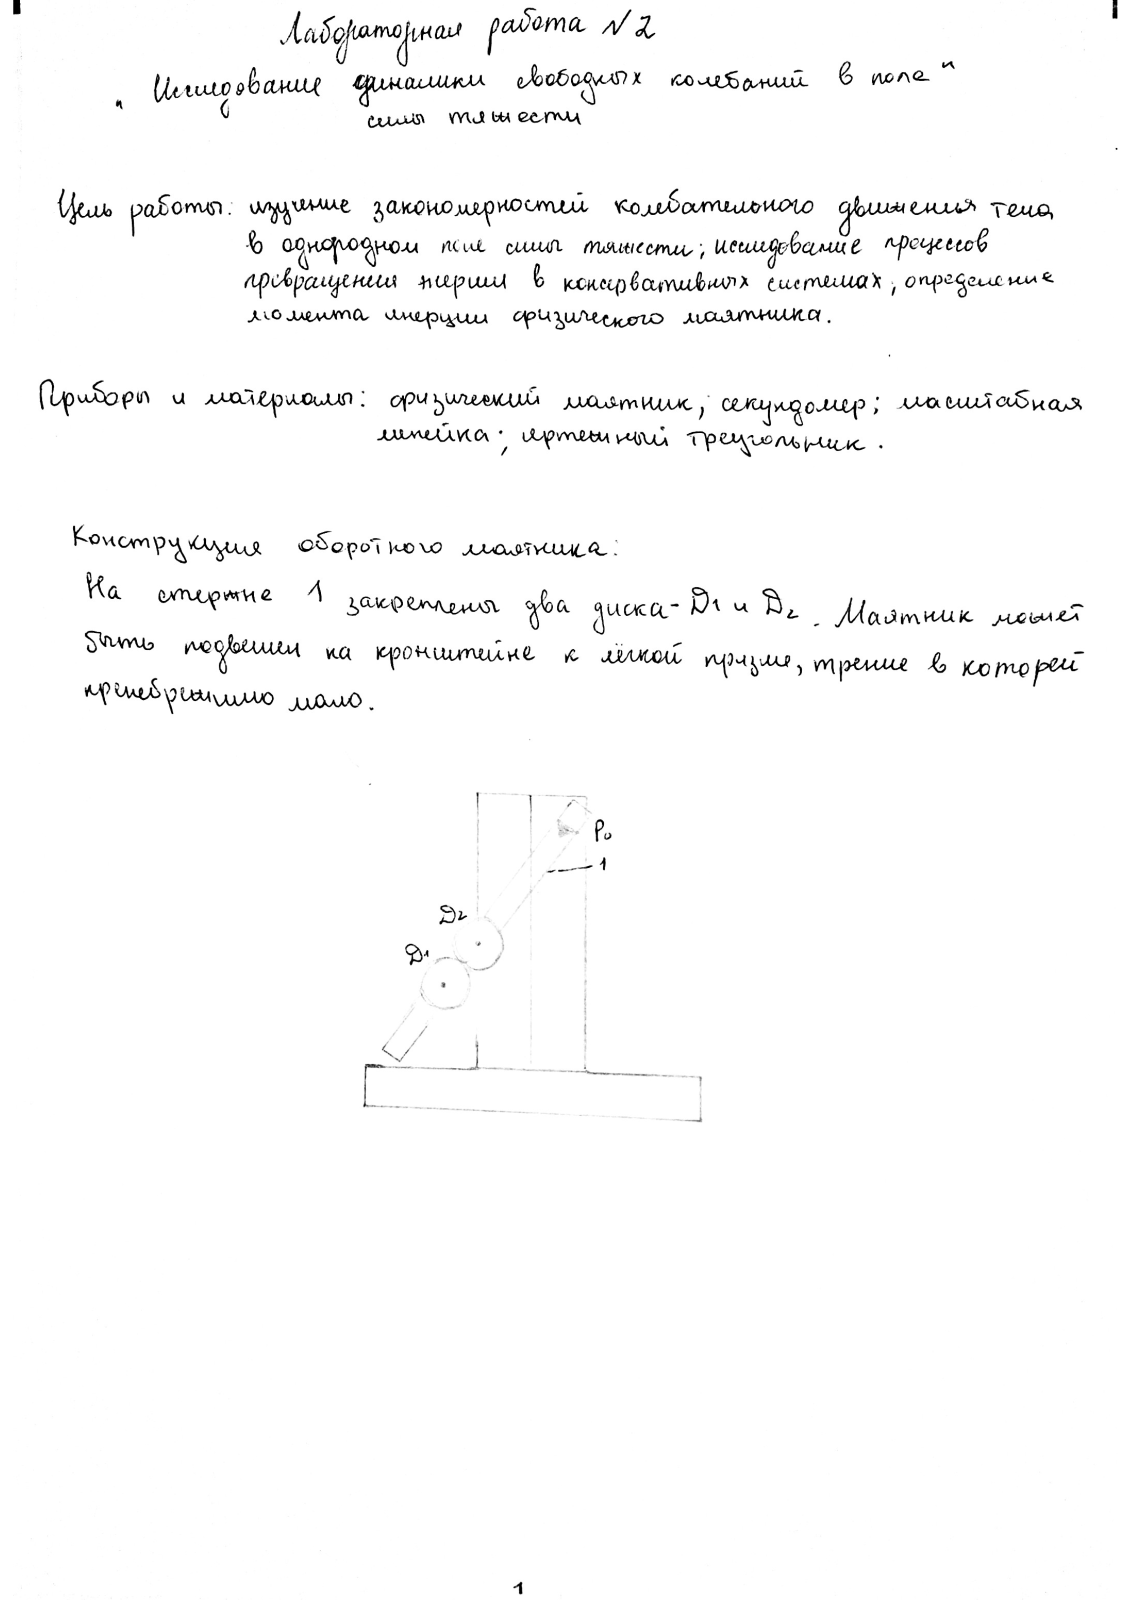 Лабораторная работа №2
"Исследование динамики свободных колебаний в поле"
силы тяжести
Цель работы: изучение закономерностей колебательного движения тела
в однородном поле силы тяжести; исследование процессов
превращения энергии в консервативных системах; определение
момента инерции физического маятника.
Приборы и материалы: физический маятник; секундомер; масштабная
линейка; чертежный треугольник.
Конструкция оборотного маятника:
На стержне 1 закреплены два диска - D1 и D2. Маятник может
быть подвешен на кронштейне к лёгкой призме, трение в которой
пренебрежимо мало.
P0
1
D2
D1
1